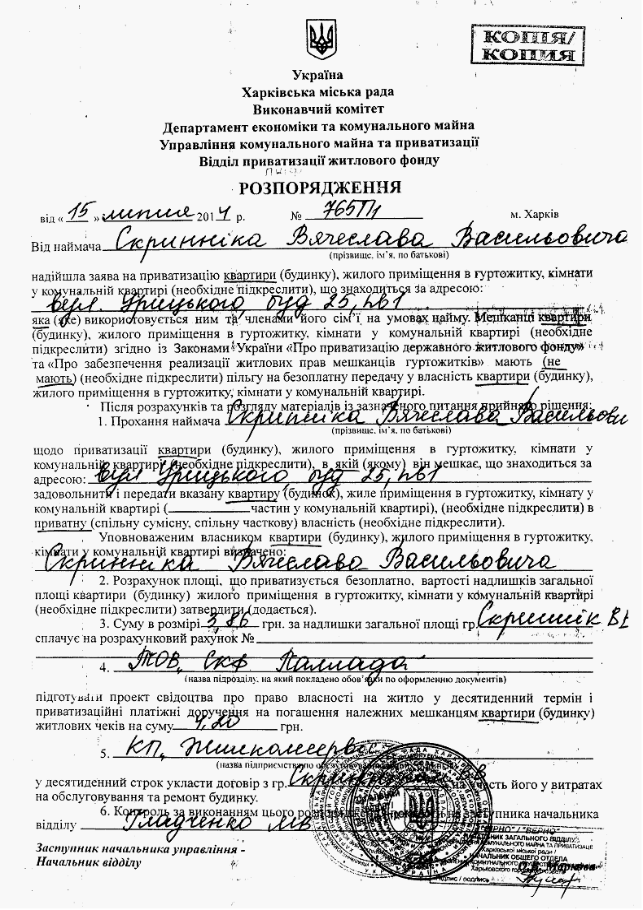 КОПІЯ/
КОПИЯ
Україна
Харківська міська рада
Виконавчий комітет
Департамент економіки та комунального майна
Управління комунального майна та приватизації
Відділ приватизації житлового фонду
РОЗПОРЯДЖЕННЯ
від « 15 » липня 2014 р. № 765П1 м. Харків
Від наймача Скринніка Вячеслава Васильовича
(прізвище, ім'я, по батькові)
надійшла заява на приватизацію квартири (будинку), жилого приміщення в гуртожитку, кімнати
у комунальній квартирі (необхідне підкреслити), що знаходиться за адресою:
вул. Урицького буд 25, кв1
яка (яке) використовується ним та членами його сім'ї на умовах найму. Мешканці квартири
(будинку), жилого приміщення в гуртожитку, кімнати у комунальній квартирі (необхідне
підкреслити) згідно із Законами України «Про приватизацію державного житлового фонду»
та «Про забезпечення реалізації житлових прав мешканців гуртожитків» мають (не
мають) (необхідне підкреслити) пільгу на безоплатну передачу у власність квартири (будинку),
жилого приміщення в гуртожитку, кімнати у комунальній квартирі.
Після розрахунків та розгляду матеріалів із зазначеного питання прийнято рішення:
1. Прохання наймача Скринніка Вячеслава Васильови
(прізвище, ім'я, по батькові)
щодо приватизації квартири (будинку), жилого приміщення в гуртожитку, кімнати у
комунальній квартирі (необхідне підкреслити), в якій (якому) він мешкає, що знаходиться за
адресою: вул Урицького буд 25, кв1
задовольнити і передати вказану квартиру (будинок), жиле приміщення в гуртожитку, кімнату у
комунальній квартирі (________частин у комунальній квартирі), (необхідне підкреслити) в
приватну (спільну сумісну, спільну часткову) власність (необхідне підкреслити).
Уповноваженим власником квартири (будинку), жилого приміщення в гуртожитку,
кімнати у комунальній квартирі визначено:
Скринніка Вячеслава Васильовича
2. Розрахунок площі, що приватизується безоплатно, вартості надлишків загальної
площі квартири (будинку) жилого приміщення в гуртожитку, кімнати у комунальній квартирі
(необхідне підкреслити) затвердити (додається).
3. Суму в розмірі 3,86 грн. за надлишки загальної площі гр. Скриннік ВВ
сплачує на розрахунковий рахунок №
4. ТОВ, СКФ Паллада
(назва підрозділу, на який покладено обов'язки по оформленню документів)
підготувати проект свідоцтва про право власності на житло у десятиденний термін і
приватизаційні платіжні доручення на погашення належних мешканцям квартири (будинку)
житлових чеків на суму 4,20 грн.
5. КП, Жилкомсервіс
(назва підприємства по обслуговуванню
у десятиденний строк укласти договір з гр. Скринніком ВВ на участь його у витратах
на обслуговування та ремонт будинку.
6. Контроль за виконанням цього розпорядження заступника начальника
відділу Гладченко МВ
Заступник начальника управління -
Начальник відділу
"ВІРНО" / "ВЕРНО"
НАЧАЛЬНИК ЗАГАЛЬНОГО ВІДДІЛУ
Харківської міської ради /
НАЧАЛЬНИК ОБЩЕГО ОТДЕЛА
підпис / подпись